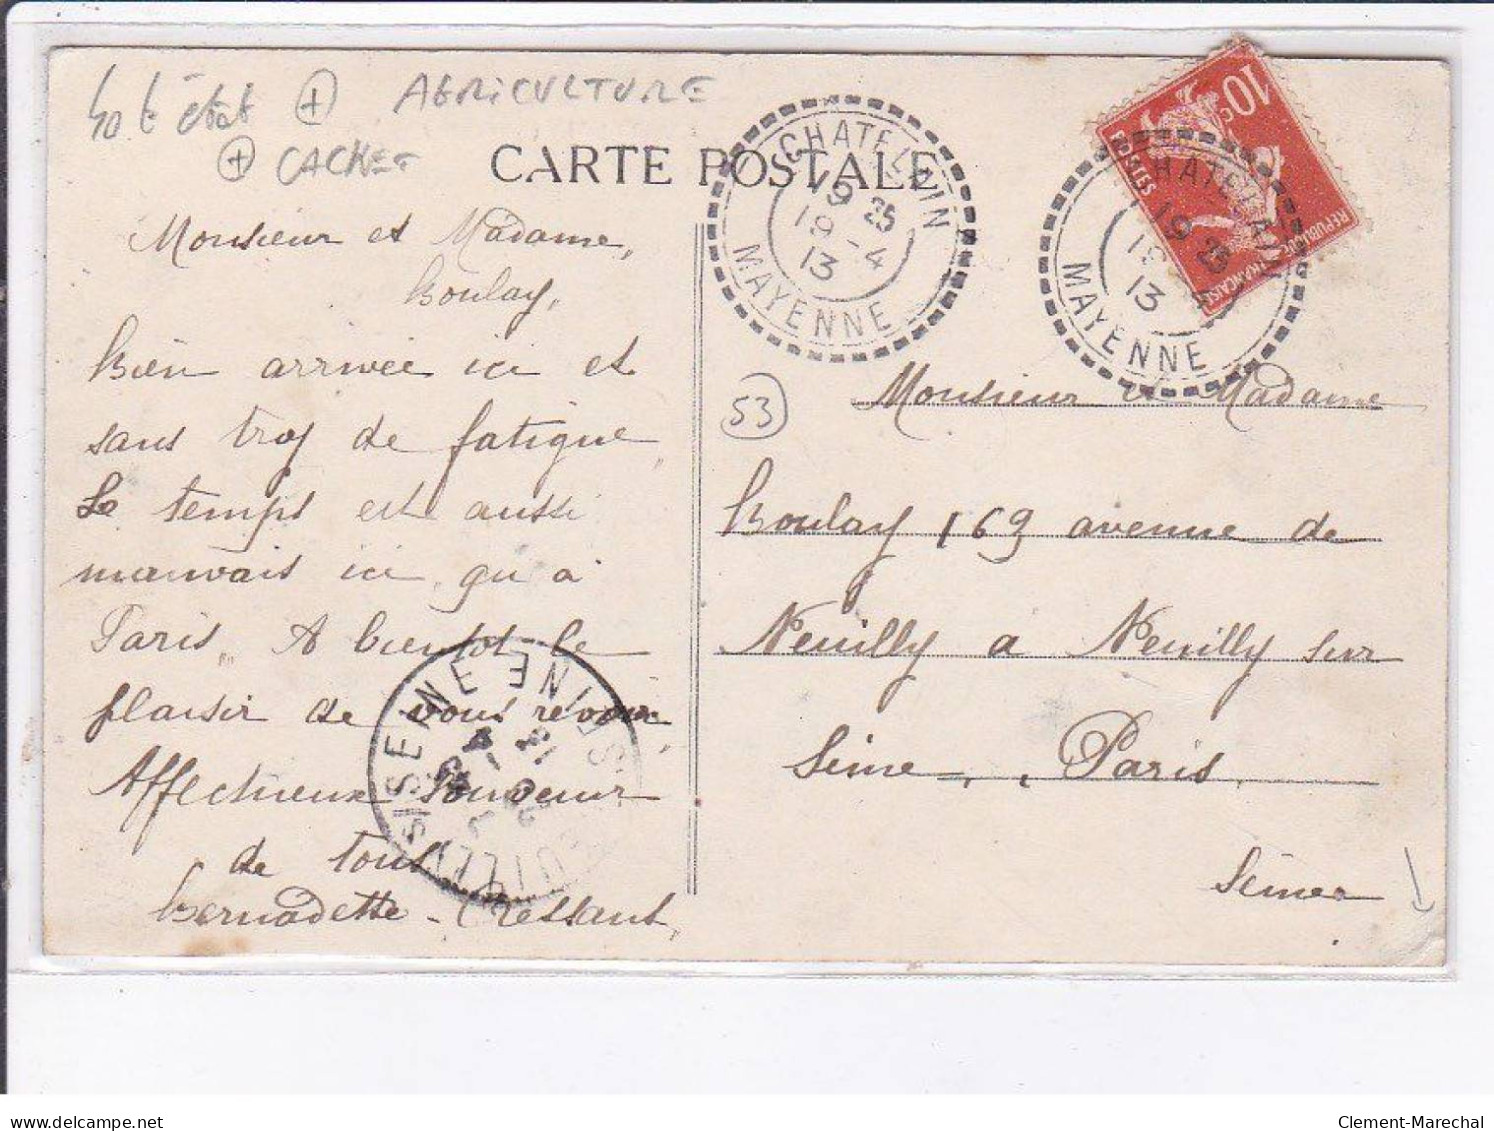 t état + AGRICULTURE
+ CACHET
CARTE POSTALE
CHATELAIN
19 25
19 - 4
13
MAYENNE
CHATELAIN
19 25
19
13
MAYENNE
10c
POSTES
REPUBLIQUE FRANÇAISE
Monsieur et Madame,
Boulay,
Bien arrivée ici et
sans trop de fatigue
Le temps est aussi
mauvais ici, qu'a
Paris. A bientot le
plaisir de vous revoir
Affectueux Souvenir
de tous
Bernadette Cressant,
NEUILLY S/SEINE SEINE
53
Monsieur et Madame
Boulay 169 avenue de
Neuilly a Neuilly sur
Seine, Paris
Seine
Clement-Marechal
www.delcampe.net